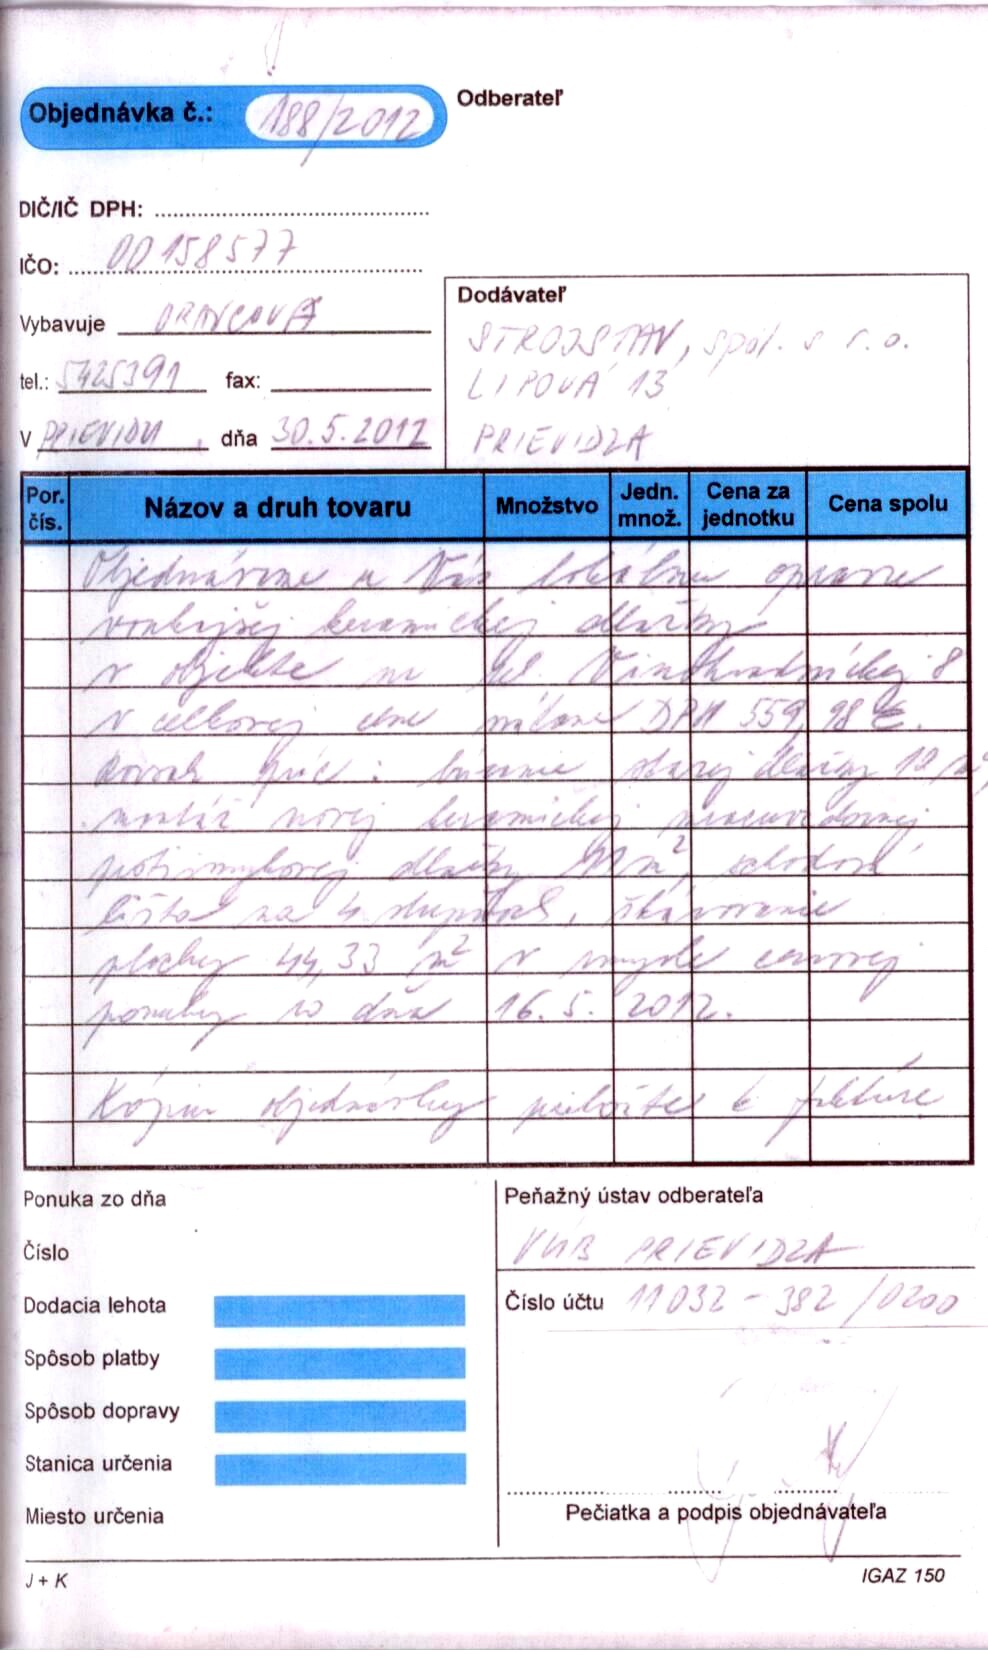 Objednávka č.: 188/2012
Odberateľ
DIČ/IČ DPH:
IČO: 00158577
Vybavuje ORAVCOVÁ
tel.: 5425391 fax:
V PRIEVIDZI, dňa 30.5.2012
Dodávateľ
STROJSTAV, spol. s r.o.
LIPOVÁ 13
PRIEVIDZA
Por. čís. Názov a druh tovaru Množstvo Jedn. množ. Cena za jednotku Cena spolu
Objednávame u Vás lokálnu opravu
vonkajšej keramickej dlažby
v objekte na Ul. Vinohradníckej 8
v celkovej cene vrátane DPH 559,98 €.
Rozsah prác: búranie starej dlažby
montáž novej keramickej mrazuvzdornej
protišmykovej dlažby m², schodová
lišta na 4 stupňoch, škárovanie
plochy 44,33 m² v zmysle cenovej
ponuky zo dňa 16.5.2012.
Kópiu objednávky priložte k faktúre
Ponuka zo dňa
Číslo
Dodacia lehota
Spôsob platby
Spôsob dopravy
Stanica určenia
Miesto určenia
Peňažný ústav odberateľa
VÚB PRIEVIDZA
Číslo účtu 11032-382/0200
Pečiatka a podpis objednávateľa
J + K
IGAZ 150